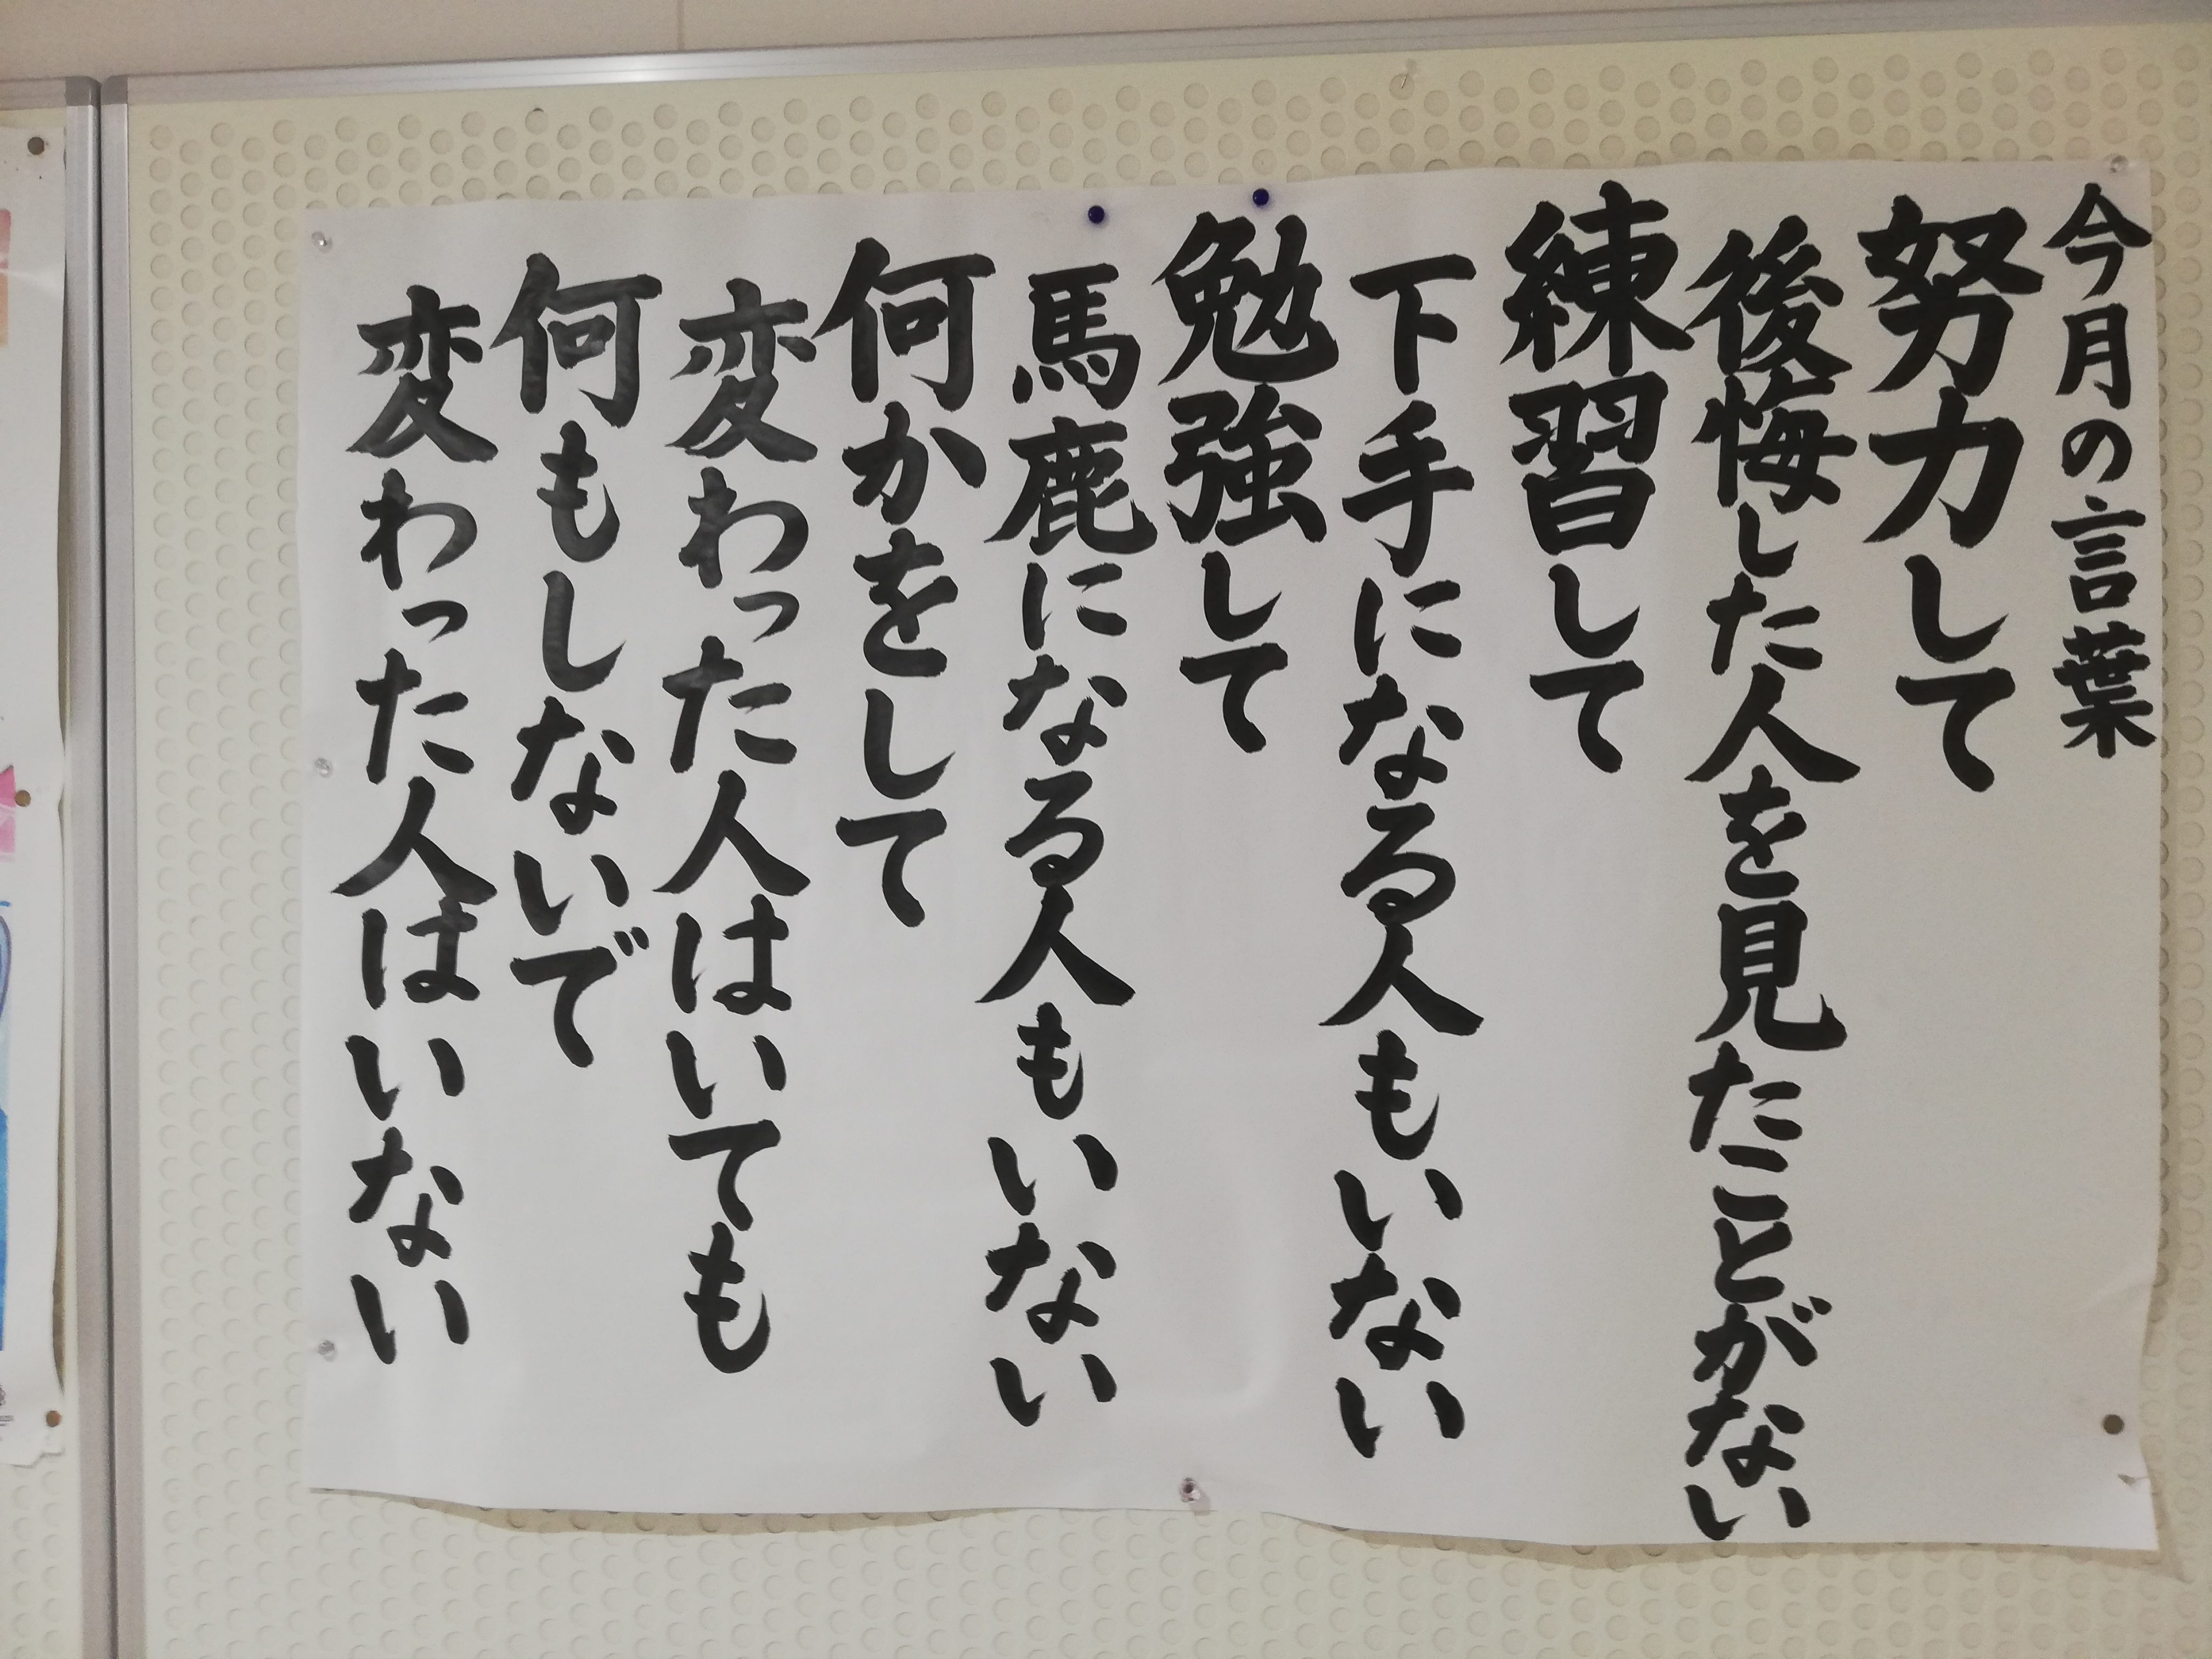 今月の言葉
努力して
後悔した人を見たことがない
練習して
下手になる人もいない
勉強して
馬鹿になる人もいない
何かをして
変わった人はいても
何もしないで
変わった人はいない